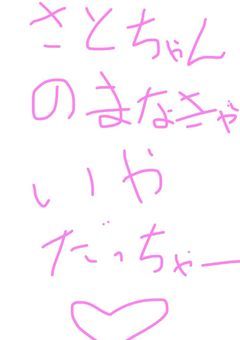 さとちゃん
のまなきゃ
いいや
だっちゃー